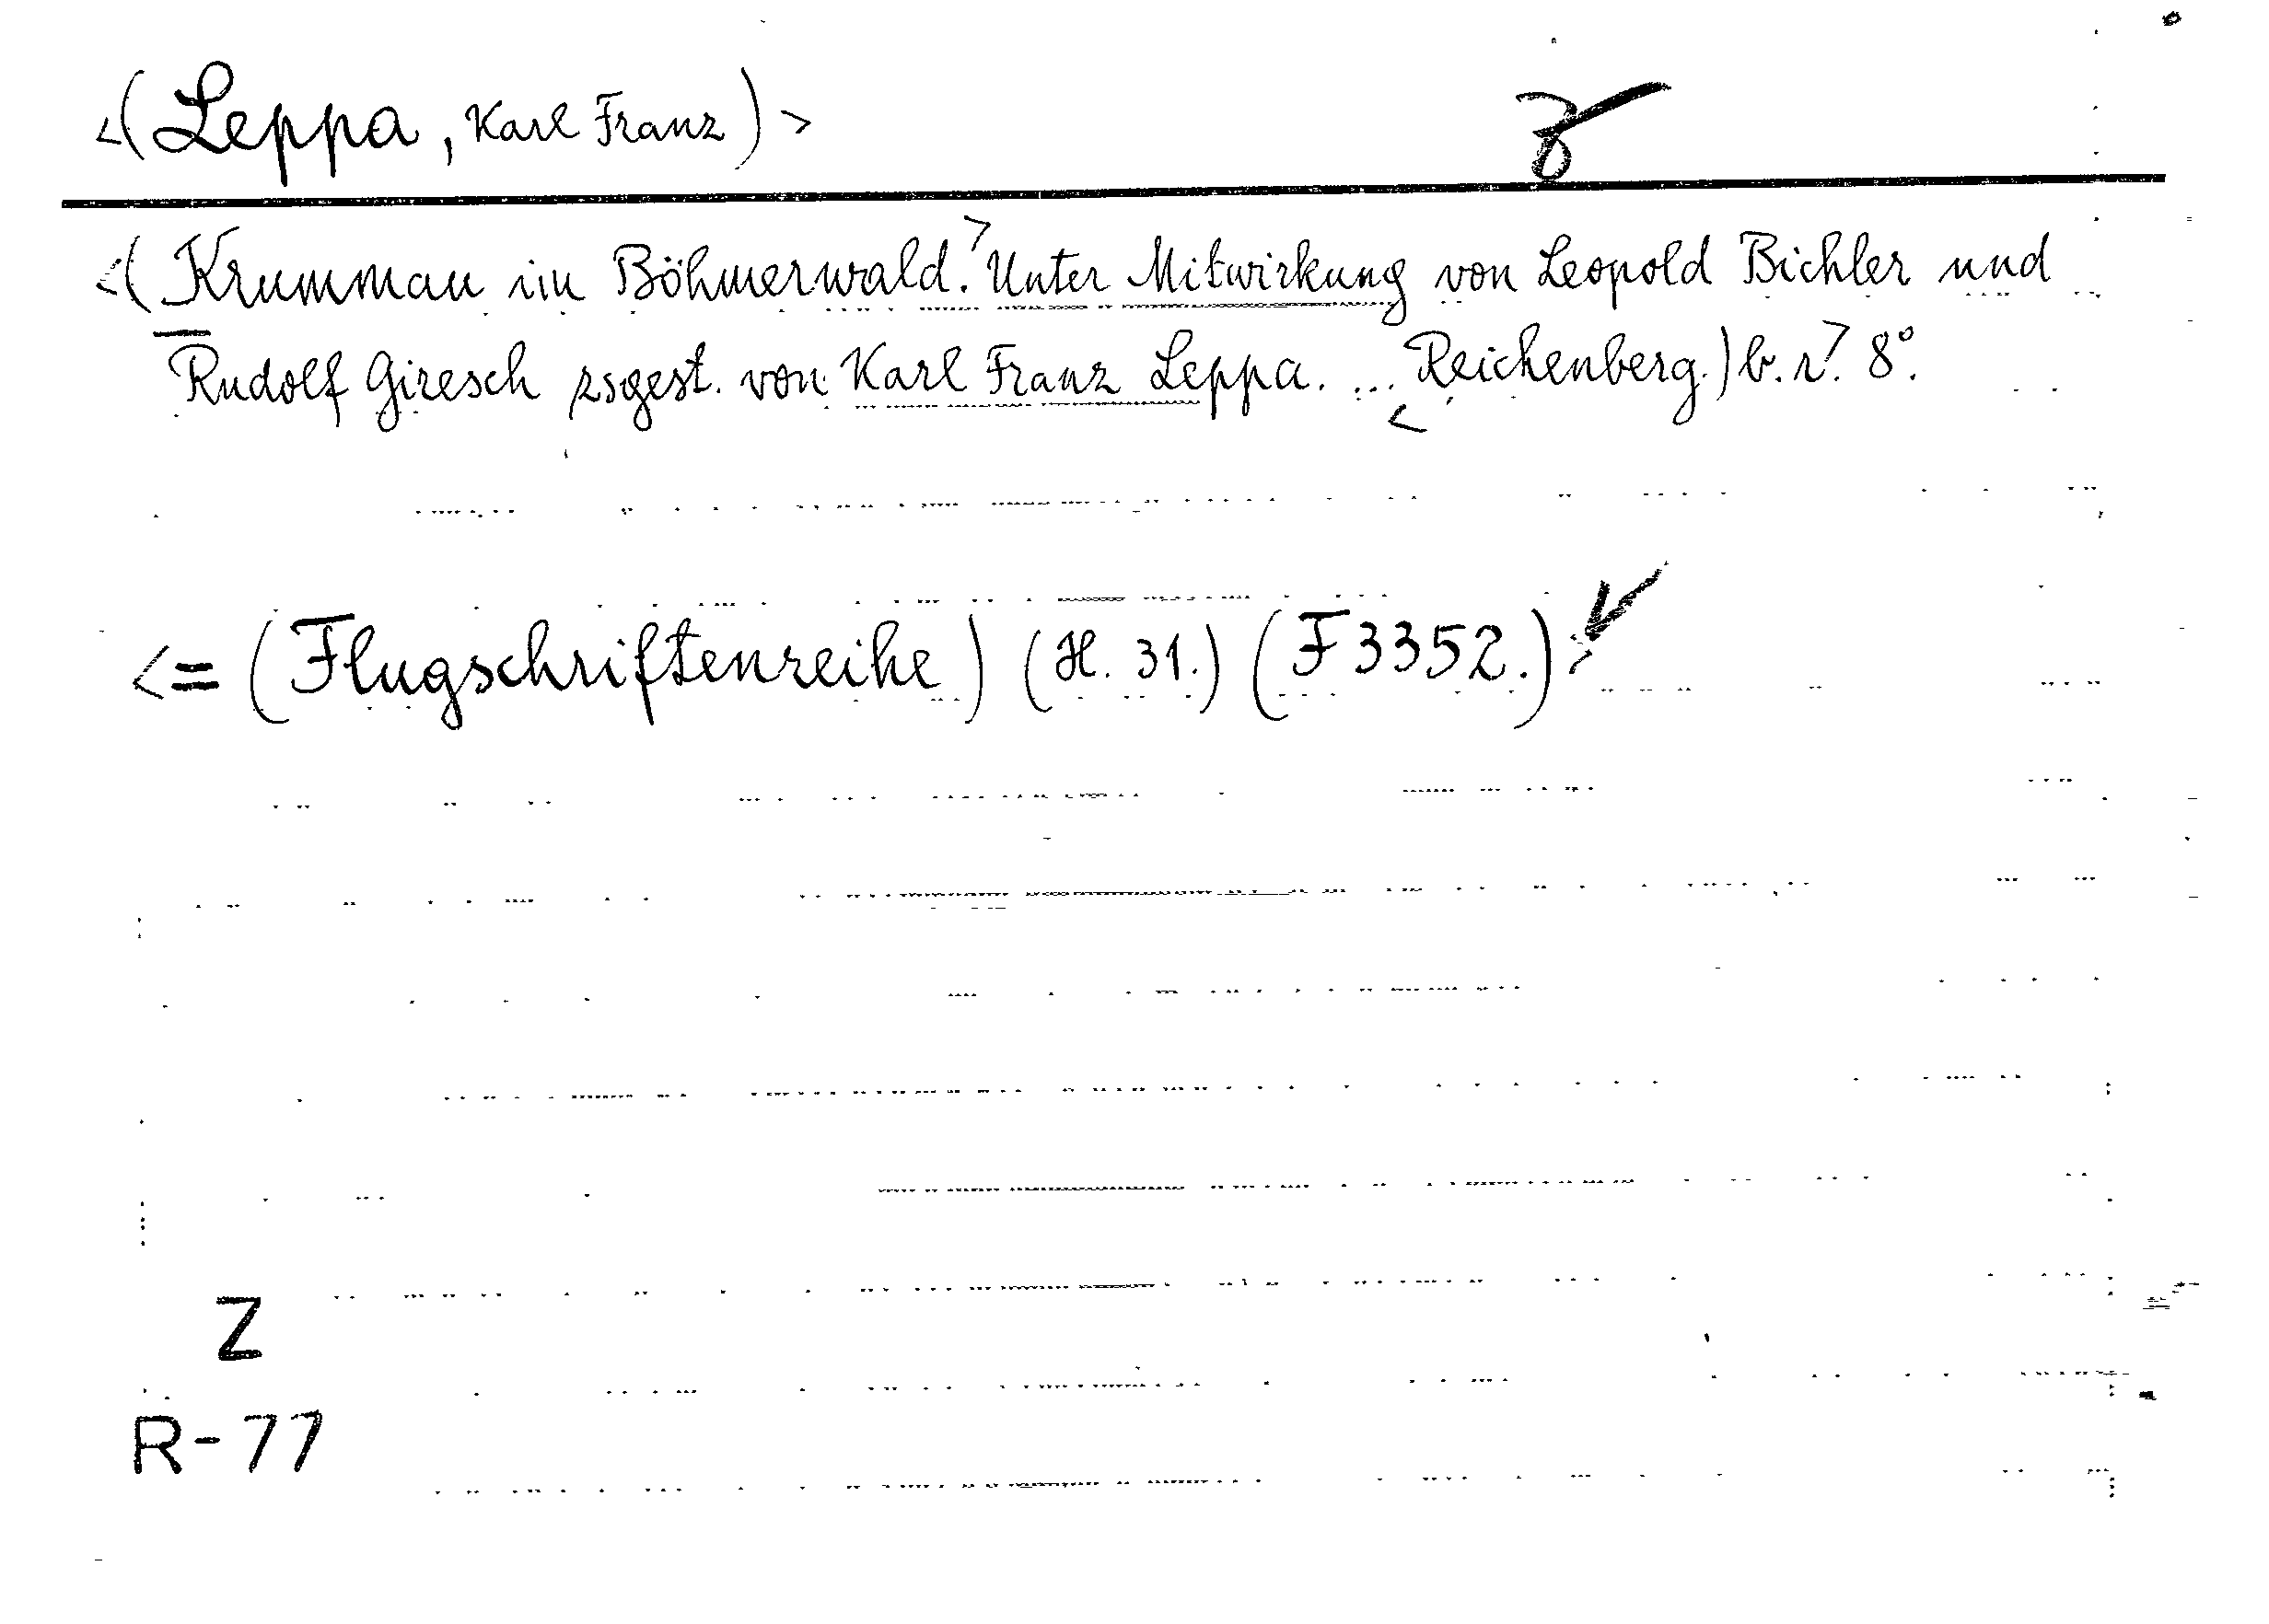 <(Leppa, Karl Franz)>
<(Krummau im Böhmerwald.> Unter Mitwirkung von Leopold Bichler und
Rudolf Giresch zsgest. von Karl Franz Leppa. ... <Reichenberg.) b. r.> 8°.
<= (Flugschriftenreihe) (H. 31.) (F 3352.)>
Z
R-77